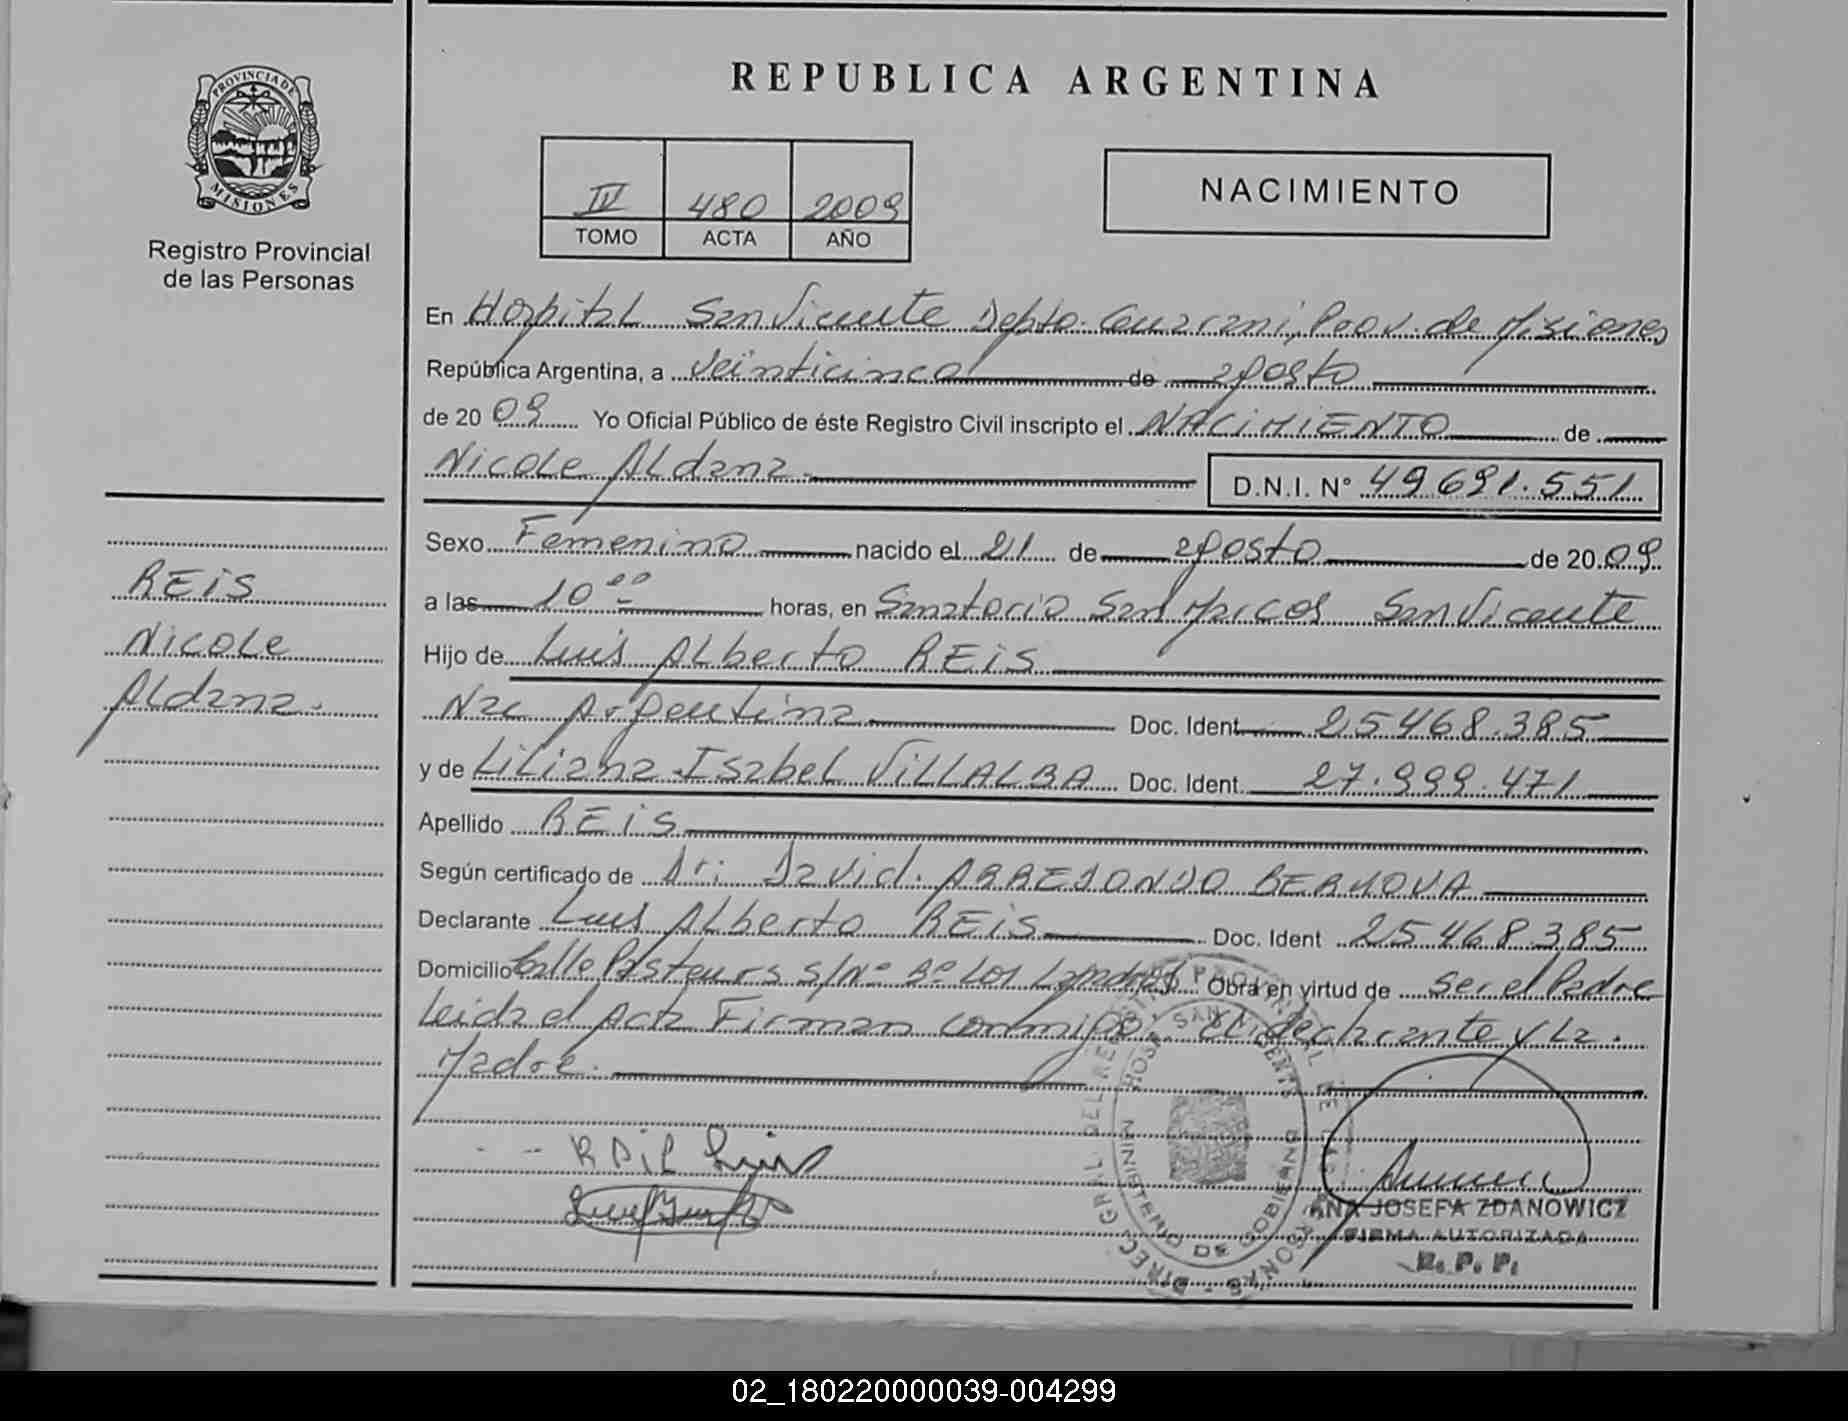 PROVINCIA DE
MISIONES
Registro Provincial
de las Personas
REIS
Nicole
Aldana.
REPUBLICA ARGENTINA
IV 480 2009
TOMO ACTA AÑO
NACIMIENTO
En Hospital San Vicente Depto. Guarani, Prov. de Misiones
República Argentina, a veinticinco de agosto
de 2009 Yo Oficial Público de éste Registro Civil inscripto el NACIMIENTO de
Nicole Aldana. D.N.I. N° 49.691.551
Sexo Femenino nacido el 21 de agosto de 2009
a las 10 00 horas, en Sanatorio San Marcos San Vicente
Hijo de Luis Alberto REIS
Nac Argentina Doc. Ident. 25.468.385
y de Liliana Isabel VILLALBA Doc. Ident. 27.999.471
Apellido REIS
Según certificado de Dr. David ARREDONDO
Declarante Luis Alberto REIS Doc. Ident 25.468.385
Domicilio Calle Pasteurs S/N° B° Los Obra en virtud de ser el Padre
Leida el Acta Firman conmigo el declarante y la
Madre.
DIREC. GRAL. DEL REGISTRO PROVINCIAL DE LAS PERSONAS
HOSP. SAN VICENTE
MINISTERIO DE GOBIERNO
ANA JOSEFA ZDANOWICZ
FIRMA AUTORIZADA
R. P. P.
02_180220000039-004299